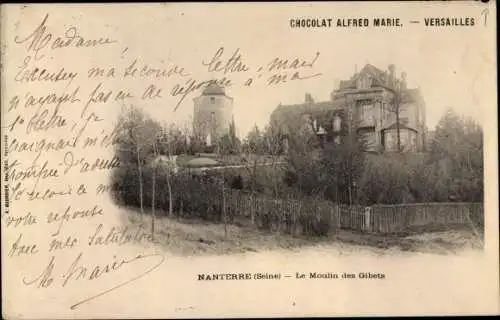 CHOCOLAT ALFRED MARIE. — VERSAILLES
Madame,
Excusez ma seconde lettre, mais
n'ayant pas de réponse à ma
1e lettre je
craignais m'être
trompée d'adresse
recevoir
votre réponse
Avec mes Salutations
M Marie
NANTERRE (Seine) — Le Moulin des Gibets